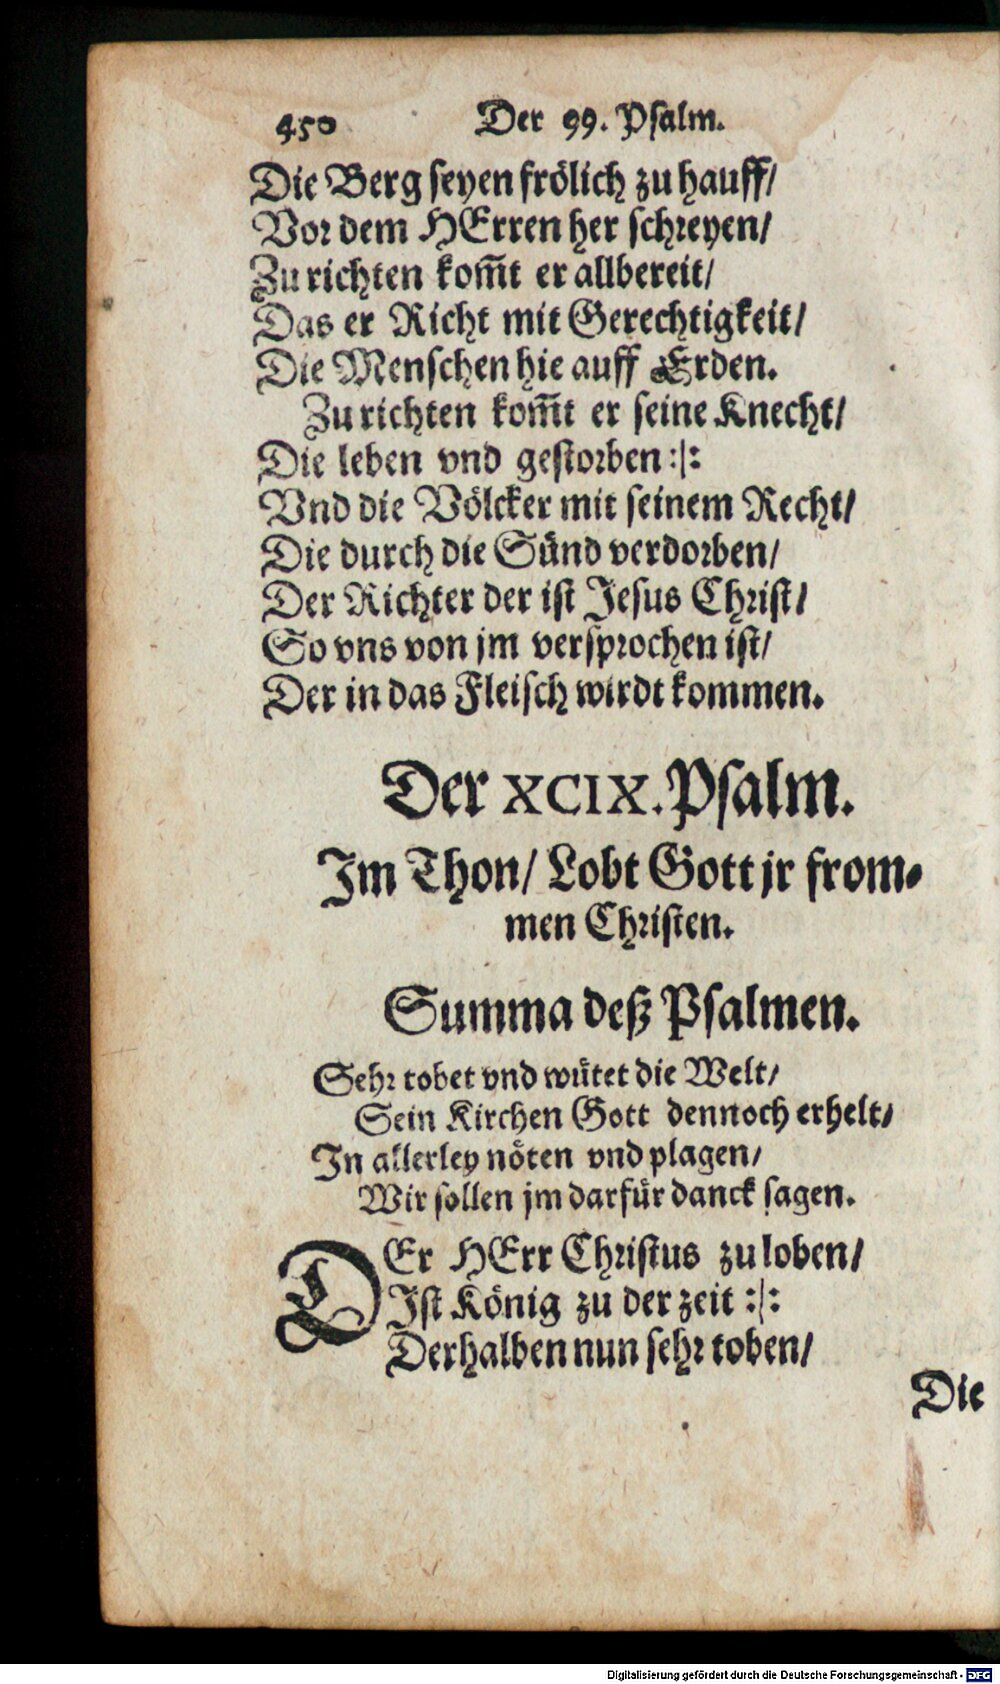 450 Der 99. Psalm.
Die Berg seyen frölich zu hauff/
Vor dem HErren her schreyen/
Zu richten kom̃t er allbereit/
Das er Richt mit Gerechtigkeit/
Die Menschen hie auff Erden.
Zu richten kom̃t er seine Knecht/
Die leben vnd gestorben :|:
Vnd die Völcker mit seinem Recht/
Die durch die Sünd verdorben/
Der Richter der ist Jesus Christ/
So vns von jm versprochen ist/
Der in das Fleisch wirdt kommen.
Der XCIX. Psalm.
Im Thon/ Lobt Gott jr from-
men Christen.
Summa deß Psalmen.
Sehr tobet vnd wütet die Welt/
Sein Kirchen Gott dennoch erhelt/
In allerley nöten vnd plagen/
Wir sollen jm darfür danck sagen.
DEr HErr Christus zu loben/
Ist König zu der zeit :|:
Derhalben nun sehr toben/
Die
Digitalisierung gefördert durch die Deutsche Forschungsgemeinschaft - DFG